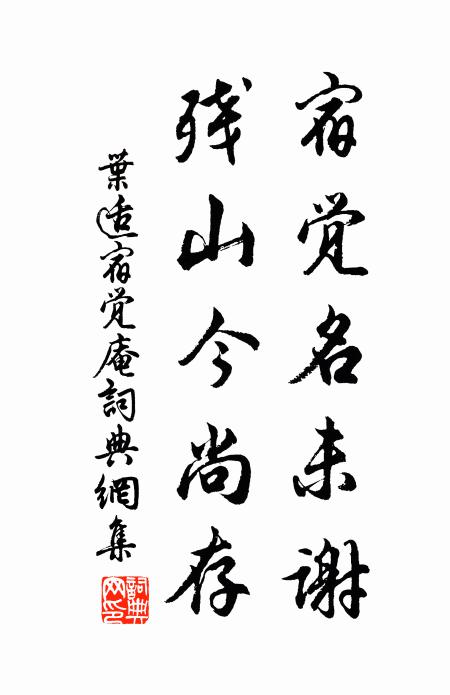 宿觉名未谢
残山今尚存
葉适宿觉庵詞典網集
詞典网印